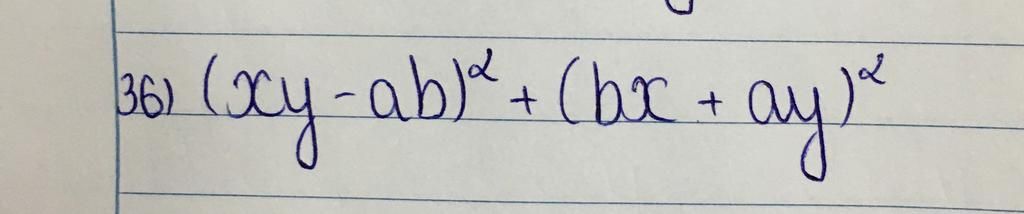 36) (xy - ab)² + (bx + ay)²